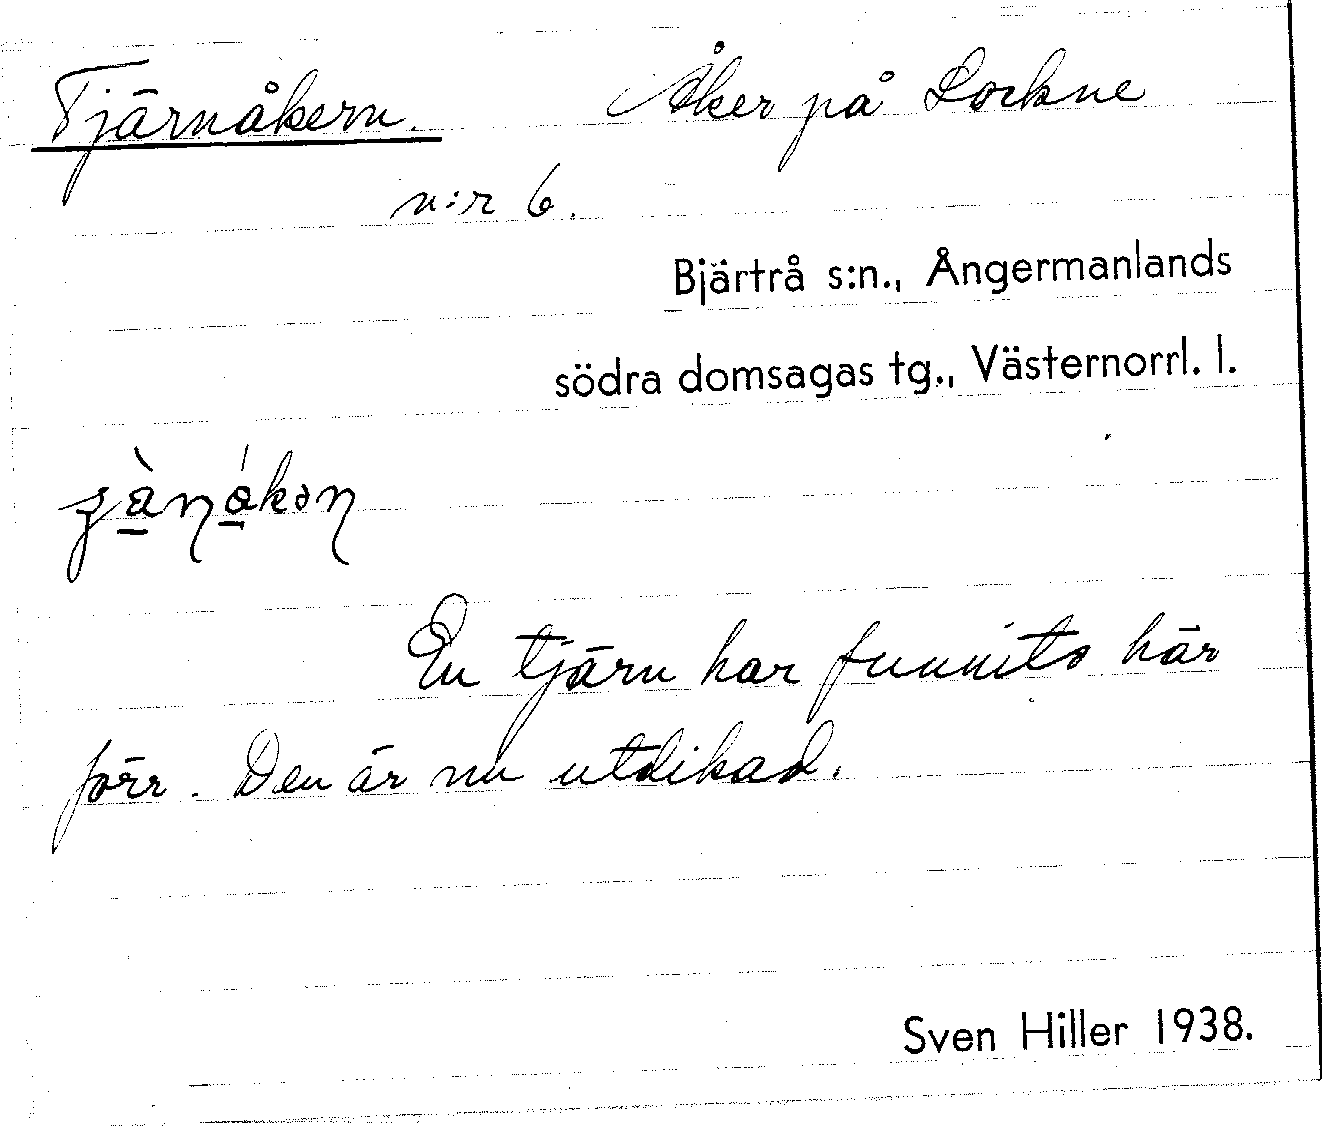 Tjärnåkern. Åker på Lockne
n:r 6.
Bjärtrå s:n., Ångermanlands
södra domsagas tg., Västernorrl. l.
En tjärn har funnits här
förr. Den är nu utdikad.
Sven Hiller 1938.